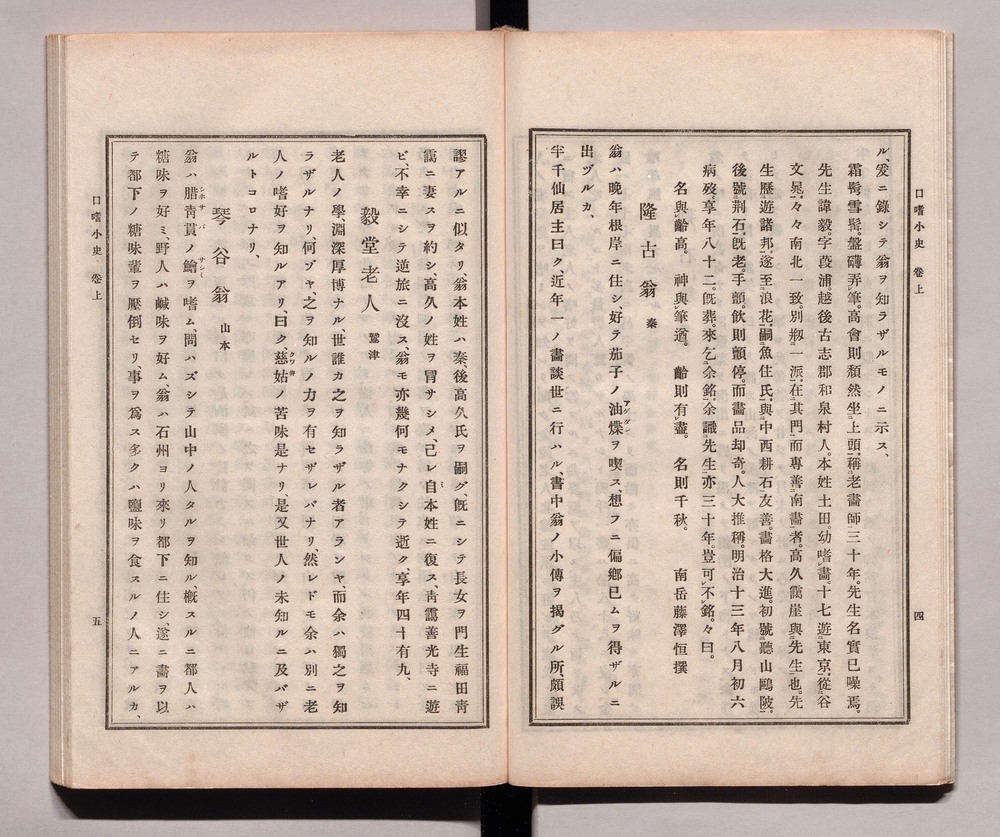 口嗜小史 卷上
四
ル、爰ニ錄シテ翁ヲ知ラザルモノニ示ス、
霜鬢雪髭。盤礴弄筆。高會則頽然坐上頭。稱老畫師三十年。先生名實已噪焉。
先生諱毅。字葭浦。越後古志郡和泉村人。本姓土田。幼嗜畫。十七遊東京。從谷
文晁。々々南北一致。別剏一派。在其門而專善南畫者。高久靄崖與先生也。先
生歷遊諸邦。遂至浪花。嗣魚住氏。與中西耕石友善。畫格大進。初號聽山鷗陂。
後號荆石。旣老。手顫。飮則顫停。而畫品却奇。人大推稱。明治十三年八月初六
病歿。享年八十二。旣葬。來乞余銘。余識先生亦三十年。豈可不銘。々曰。
名與齡高。 神與筆遒。 齡則有盡。 名則千秋。 南岳藤澤恒撰
隆古翁 秦
翁ハ晚年根岸ニ住シ、好テ茄子ノ油煠アゲダシヲ喫ス、想フニ偏鄕已ムヲ得ザルニ
出ヅルカ、
半千仙居主曰ク、近年一ノ畵談世ニ行ハル、書中翁ノ小傳ヲ揭グル所、頗誤
謬アルニ似タリ、翁本姓ハ秦、後高久氏ヲ嗣グ、旣ニシテ長女ヲ門生福田靑
靄ニ妻スヲ約シ、高久ノ姓ヲ冒サシメ、己レ自本姓ニ復ス、靑靄善光寺ニ遊
ビ、不幸ニシテ逆旅ニ沒ス、翁モ亦幾何モナクシテ逝ク、享年四十有九、
毅堂老人 鷲津
老人ノ學、淵深厚博ナル、世誰カ之ヲ知ラザル者アランヤ、而余ハ獨之ヲ知
ラザルナリ、何ゾヤ之ヲ知ルノ力ヲ有セザレバナリ、然レドモ余ハ別ニ老
人ノ嗜好ヲ知ルアリ、曰ク、慈姑クワ井ノ苦味是ナリ、是又世人ノ未知ルニ及バザ
ルトコロナリ、
琴谷翁 山本
翁ハ腊靑貫シホサバノ鱠サシミヲ嗜ム、問ハズシテ山中ノ人タルヲ知ル、槪スルニ都人ハ
糖味ヲ好ミ、野人ハ鹹味ヲ好ム、翁ハ石州ヨリ來リ都下ニ住シ、遂ニ畵ヲ以
テ都下ノ糖味輩ヲ壓倒セリ、事ヲ爲ス多クハ鹽味ヲ食スルノ人ニアルカ、
口嗜小史 卷上
五